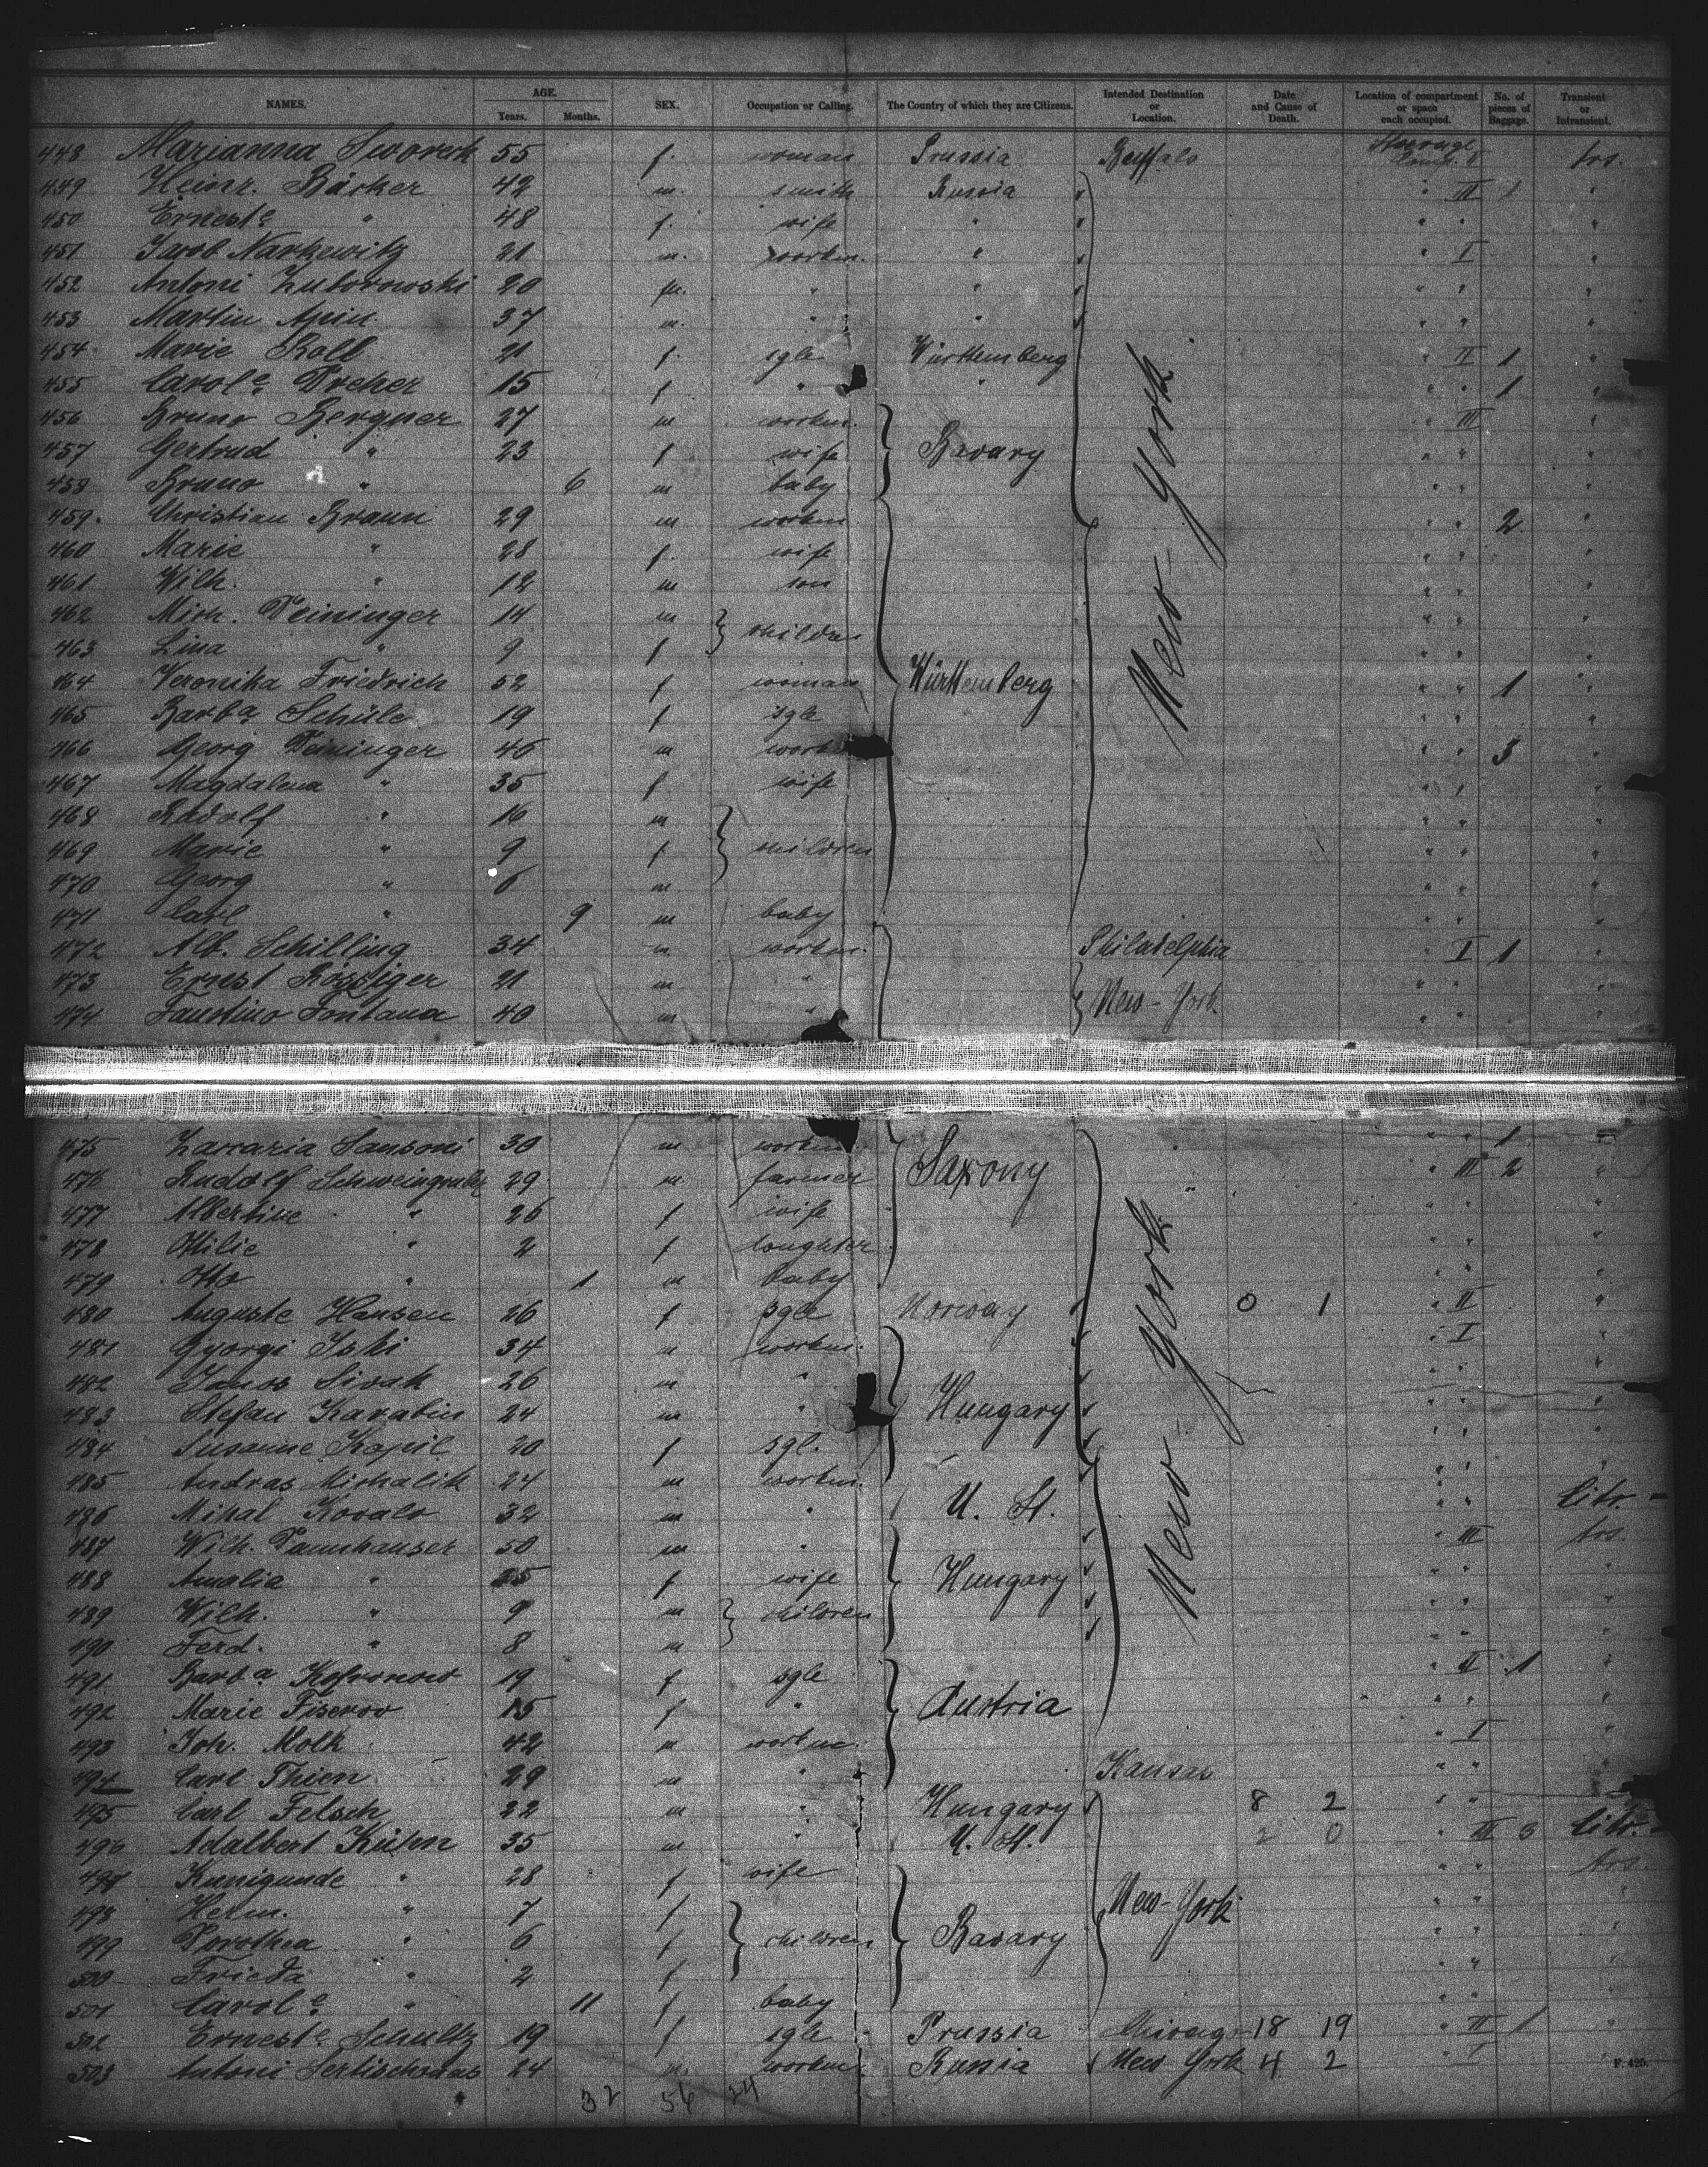 NAMES. AGE. Years. Months. SEX. Occupation or Calling. The Country of which they are Citizens. Intended Destination or Location. Date and Cause of Death. Location of compartment or space each occupied. No. of pieces of Baggage. Transient or Intransient.
448 Marianna 55 f. woman Prussia Buffalo Steerage Comp. trs.
449 Heinr. Bäcker 42 m. smith Russia " III 1 "
450 Erneste " 48 f. wife " " " "
451 Jacob Narkewitz 21 m. workm. " " I "
452 Antoni Zuborowski 20 m. " " " " "
453 Martin Apin 37 m. " " " " "
454 Marie Roll 21 f. sgle Württemberg " II 1 "
455 Carole Dreher 15 f " " " " 1 "
456 Bruno Bergner 27 m workm. " III "
457 Gertrud " 23 f wife Bavary " " "
458 Bruno " 6 m baby " " "
459 Christian Braun 29 m workm " " 2 "
460 Marie " 28 f. wife " " "
461 Wilh. " 12 m son " " "
462 Mich. Deininger 14 m children " " "
463 Lina " 9 f " " "
464 Veronika Friedrich 52 f woman Württemberg " " 1 "
465 Barba Schüle 19 f sgle " " "
466 Georg Deininger 46 m work " " 3 "
467 Magdalena " 35 f. wife " " "
468 Rudolf " 16 m " " "
469 Marie " 9 f children " " "
470 Georg " 6 m " " "
471 Carl " 9 m baby " " "
New-York
472 Alb. Schilling 34 m workm. Philadelphia " I 1 "
473 Ernest Rössiger 21 m " " " "
474 Faustino Fontana 40 m " New-York. " " "
475 Zaccaria Sansoni 30 m workm. " " " 1 "
476 Rudolf Schweingruber 29 m farmer Saxony " " III 2 "
477 Albertine " 26 f wife " " "
478 Ottilie " 2 f daughter " " "
479 Otto " 1 m baby " " "
480 Auguste Hansen 26 f sgle Norway 0 1 " II "
481 Gyorgi 34 m workm. " I "
482 Janos Sivak 26 m " " " "
483 Stefan Karabin 24 m " Hungary " " "
484 Susanne Kapil 20 f sgl. " " "
485 Andras Michalik 24 m workm. " " "
486 Mihal Kovalo 32 m " U. St. " " Citz. -
487 Wilh. Dannhauser 50 m " " III trs.
488 Amalia " f wife Hungary " " "
489 Wilh. " 9 m children " " "
490 Ferd. " 8 m " " "
New York
491 Barba 19 f sgle " II 1 "
492 Marie Fiserov 15 f " Austria " " "
493 Joh. Molk 42 m workm. " I "
494 Carl Thien 29 m " Kansas " " "
495 Carl Felsch 22 m " Hungary 8 2 " " "
496 Adalbert Kühn 35 m " U. St. 2 0 " III 3 Citz. -
497 Kunigunde " 28 f wife " " trs.
498 Herm. " 7 f New-York " " "
499 Dorothea " 6 f children Bavary " " "
500 Frieda " 2 f " "
501 Carole " 11 f baby " "
502 Erneste Schultz 19 f sgle Prussia Chicago 18 19 " II 1 "
503 Antoni 24 m. workm Russia New York 4 2 " I
F. 425.
32 56 24